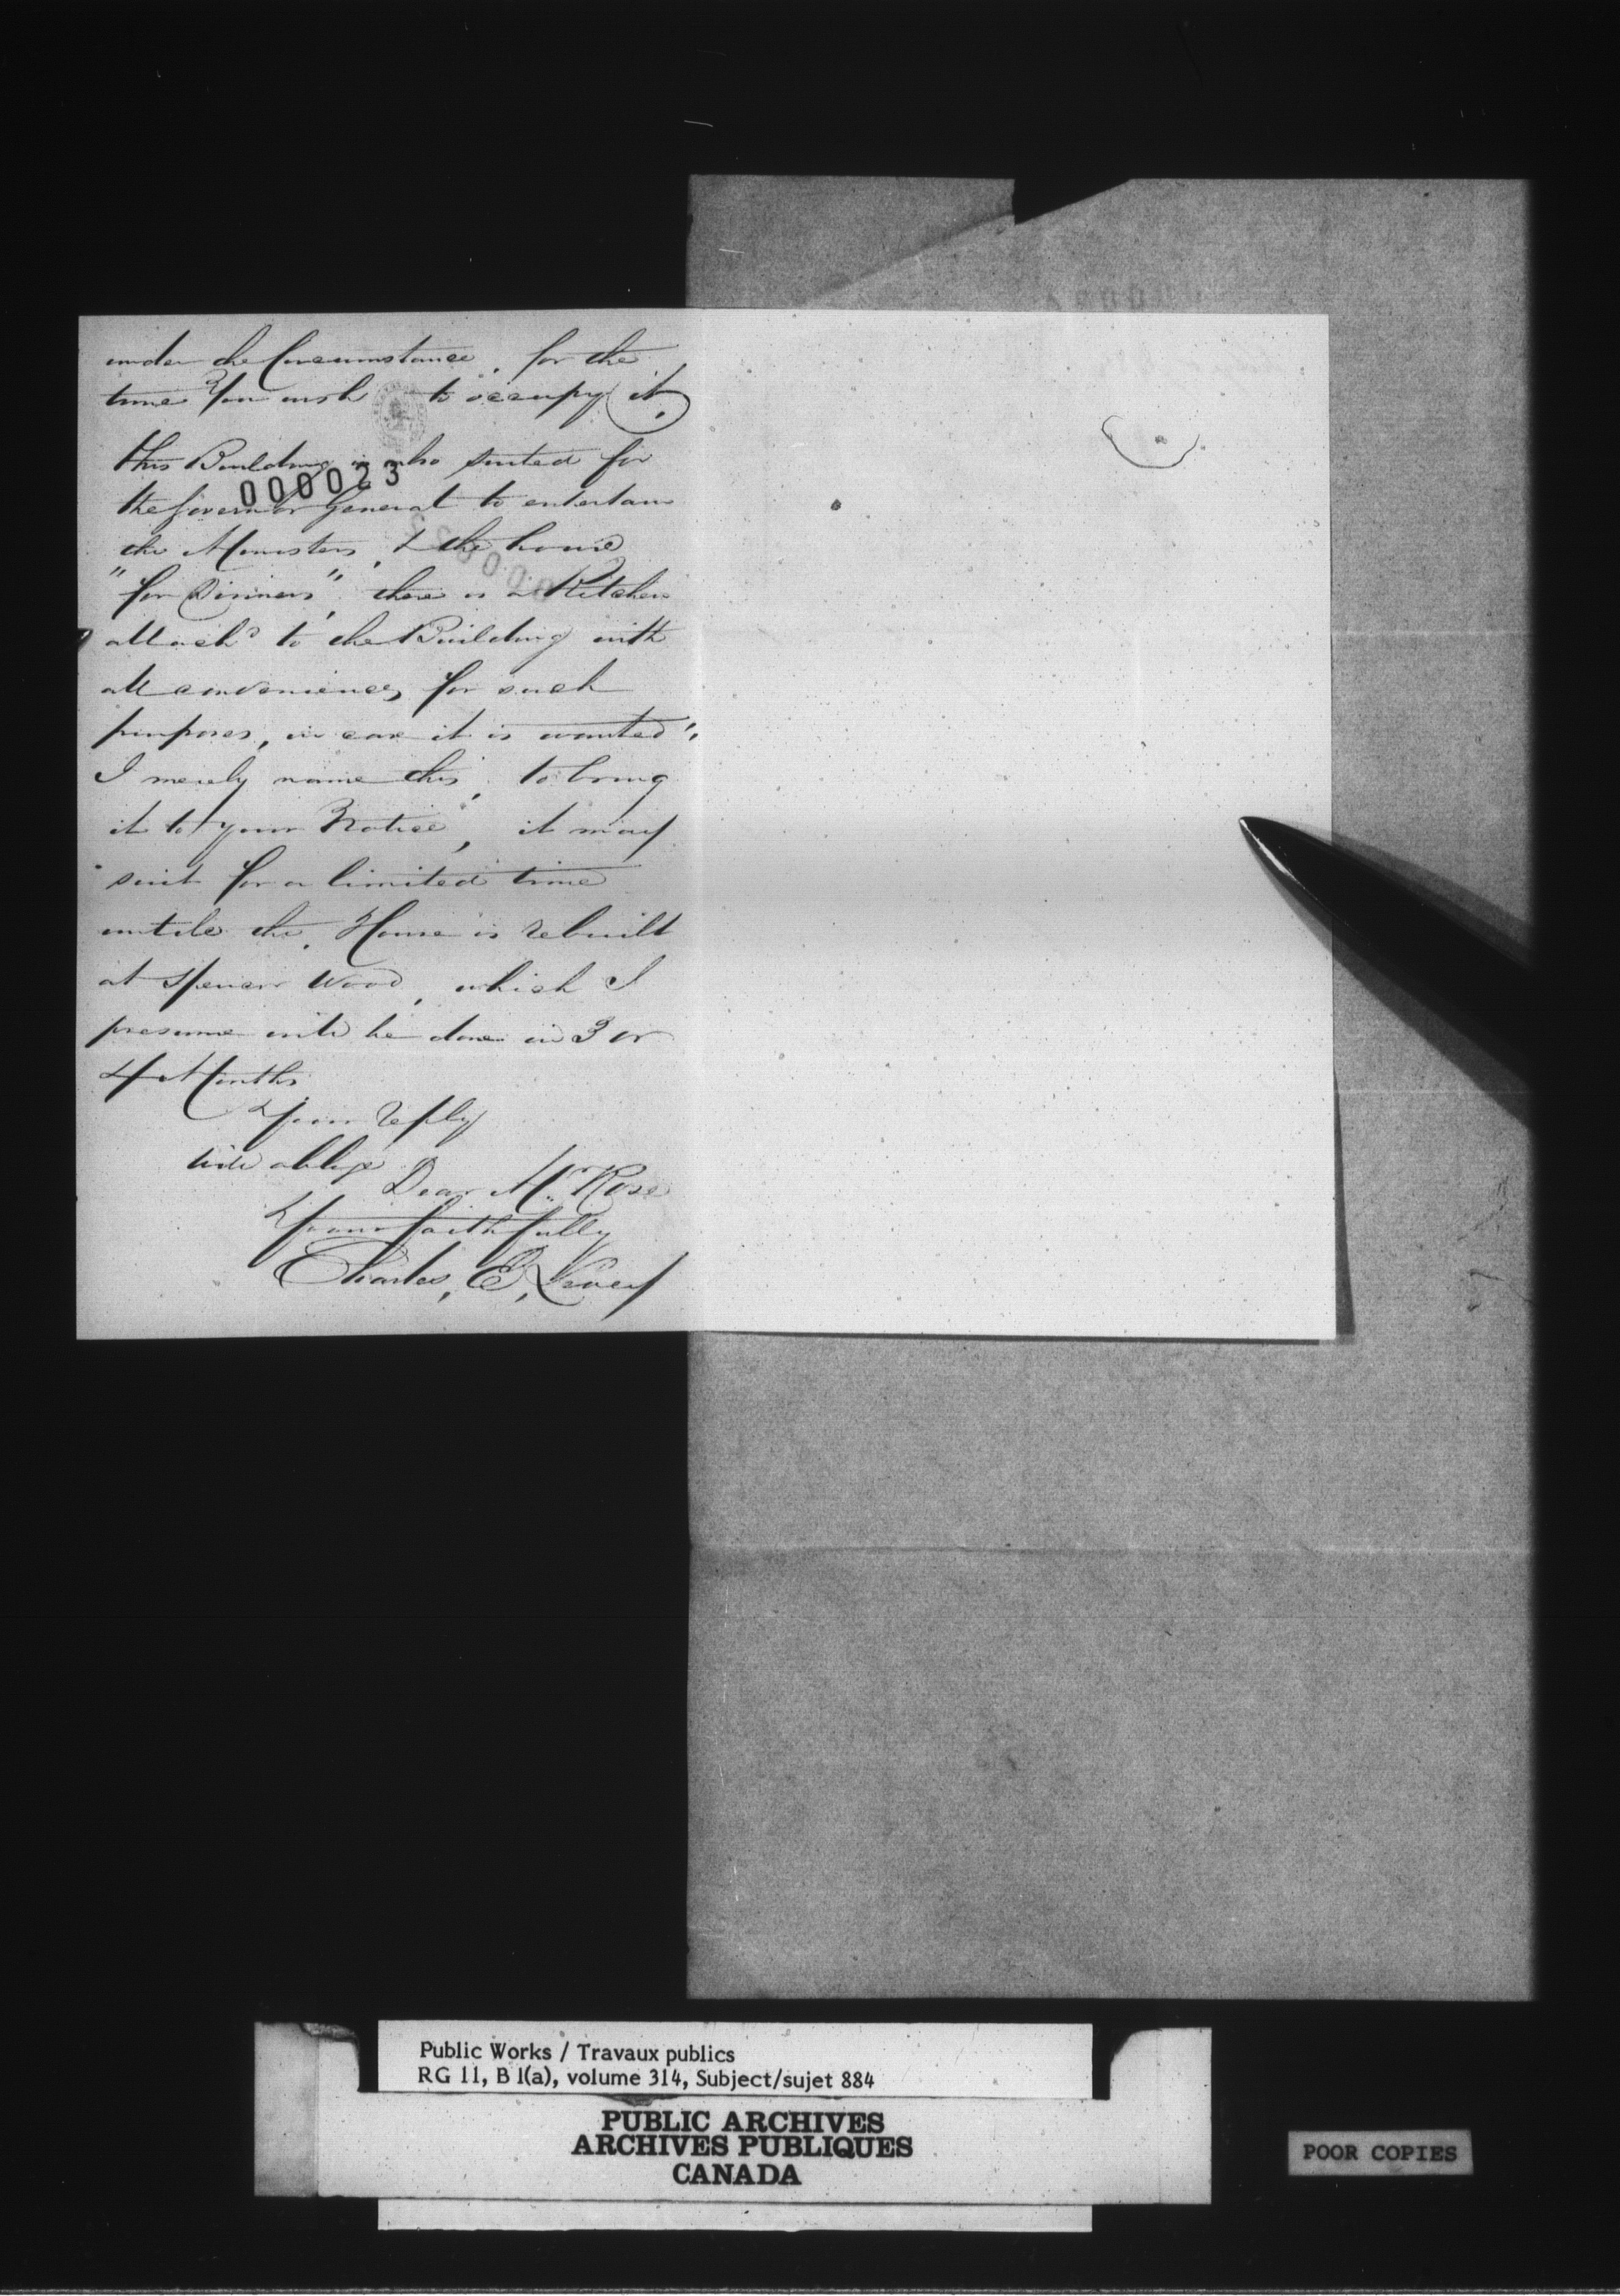 under the Circumstance, for the
time You wish to occupy it,
this Building is also suited for
000023
the Governor General to entertain
the Ministers, & the house
"for Dinners", there is a Kitchen
attachd to the Building with
all conveniences, for such
purposes, in case it is wanted".
I merely name this, to bring
it to your Notice, it may
suit for a limited time
untill the House is rebuilt
at Spencer Wood, which I
presume will be done in 3 or
4 Months
Your reply
will oblige
Dear Mr. Rose
Yours faithfully
Charles, E, Levey
Public Works / Travaux publics
RG 11, B 1(a), volume 314, Subject/sujet 884
PUBLIC ARCHIVES
ARCHIVES PUBLIQUES
CANADA
POOR COPIES